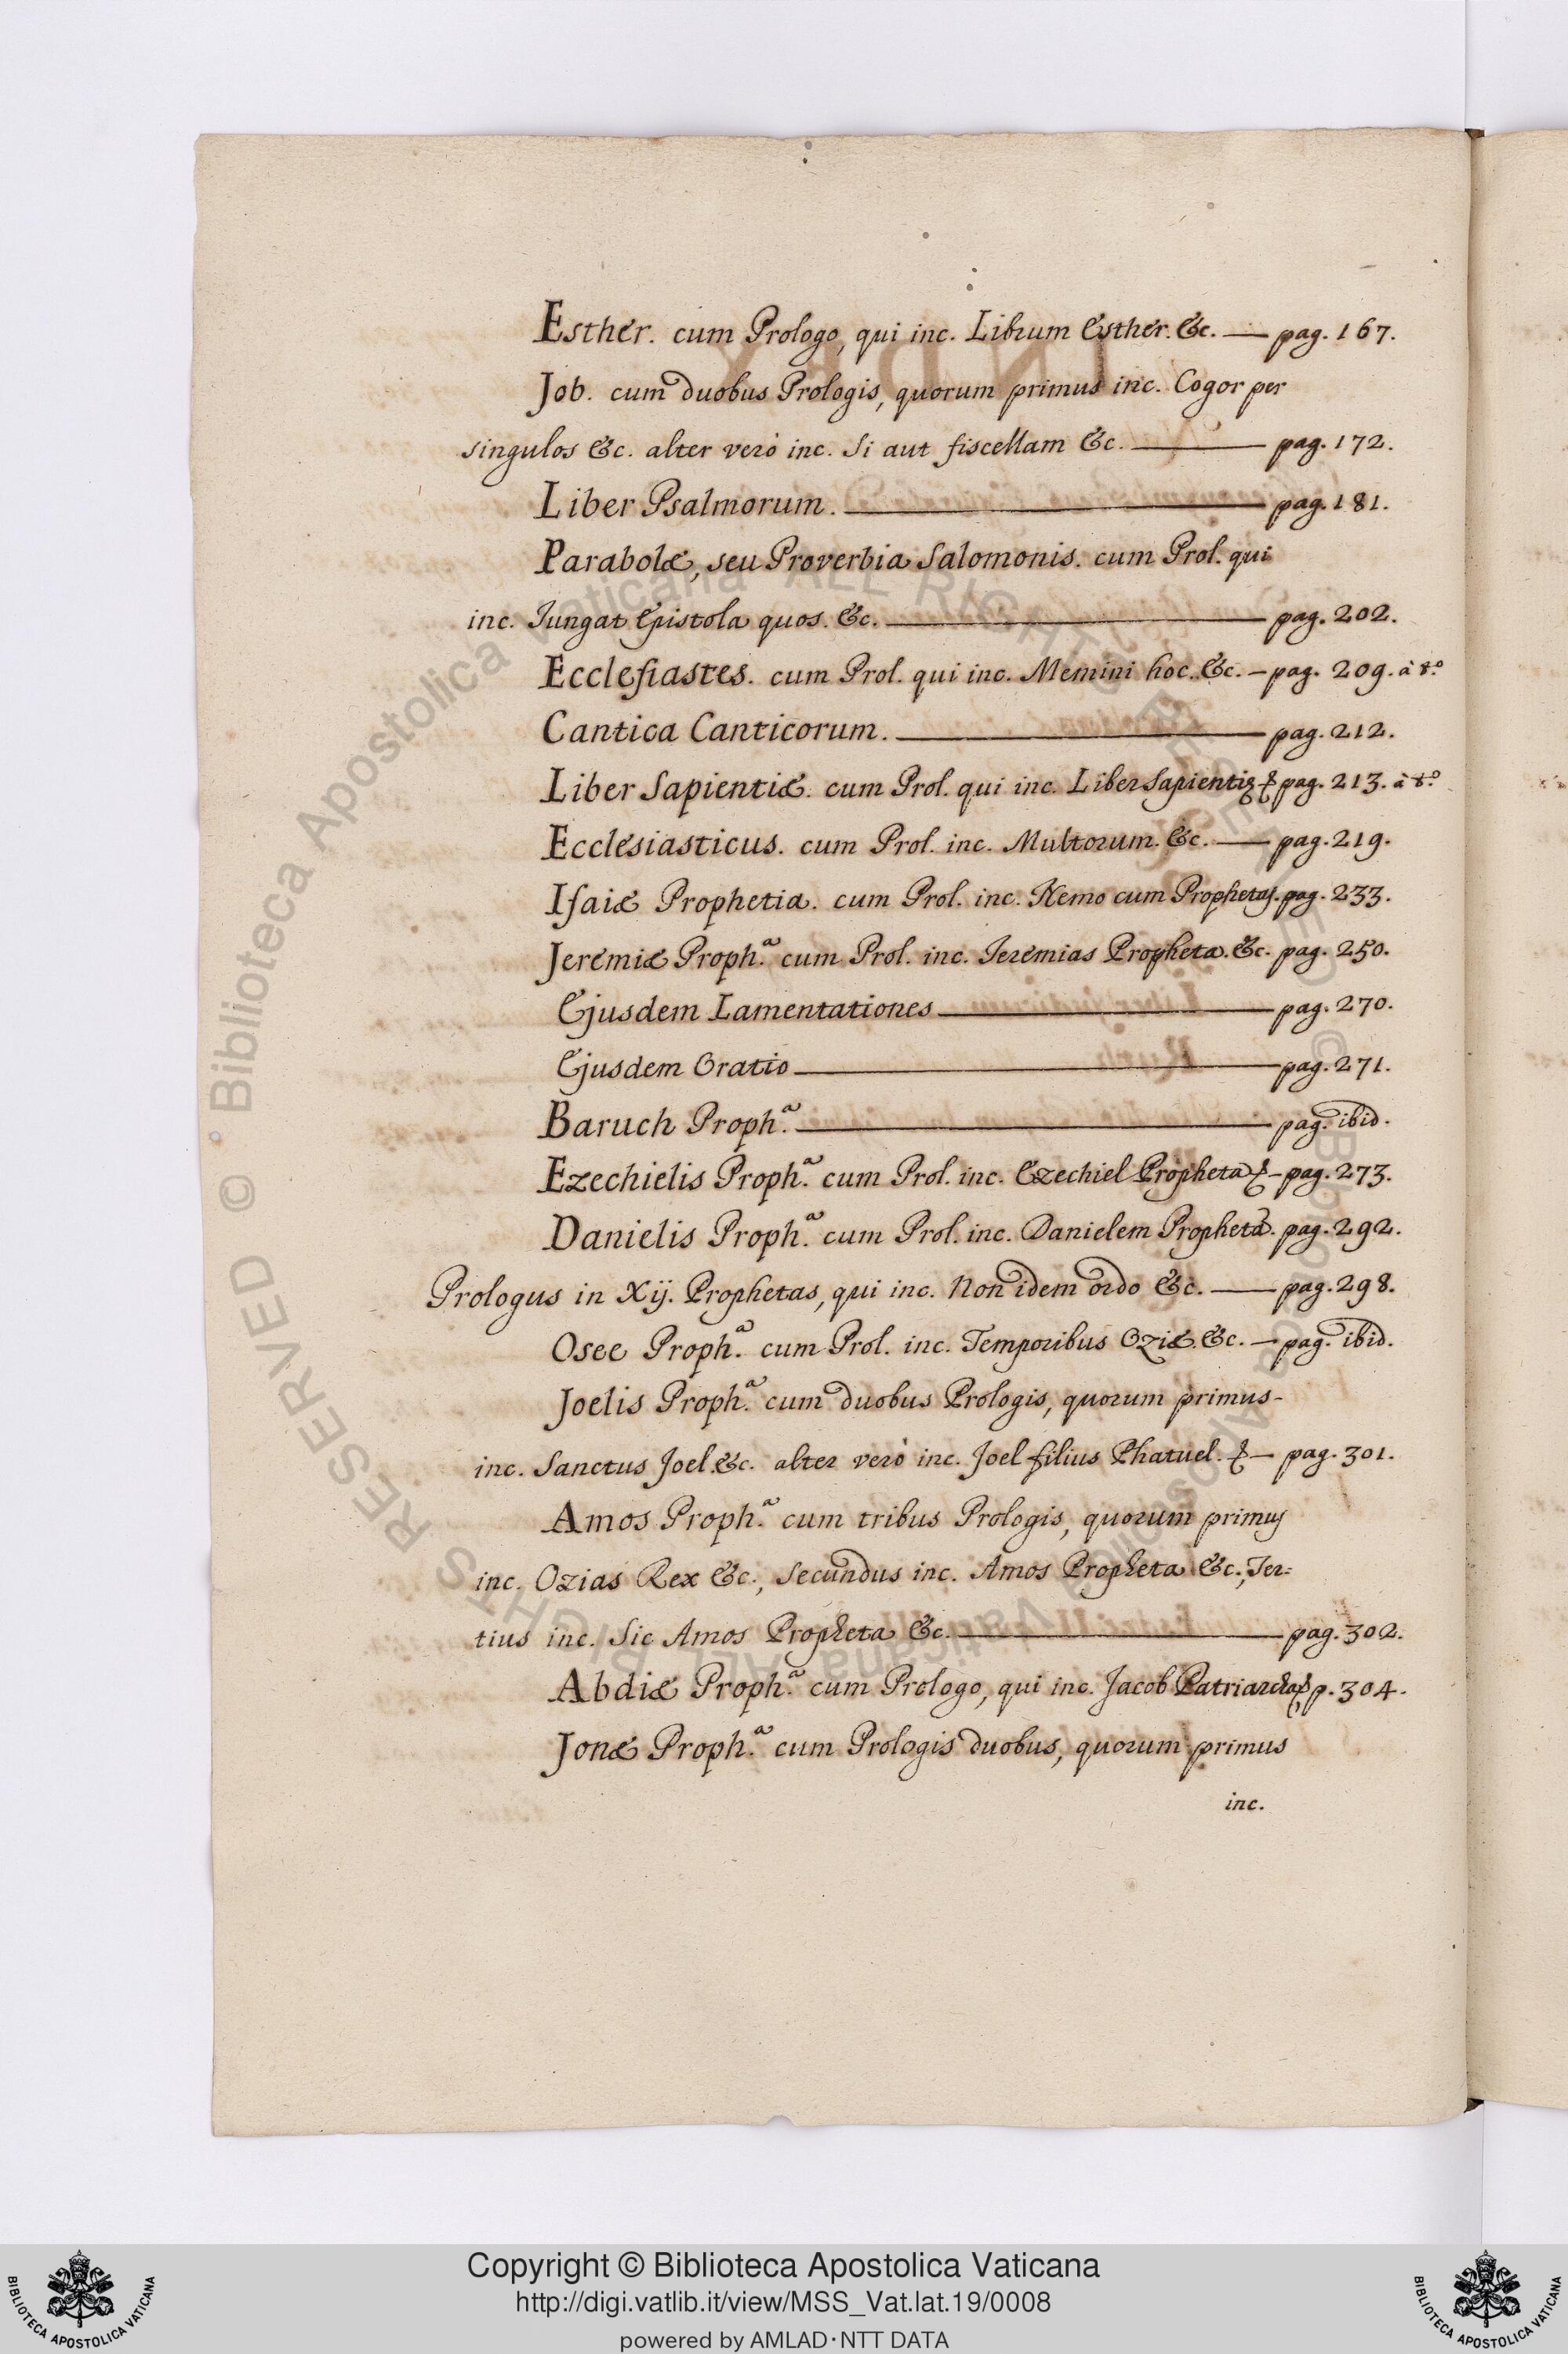 Esther. cum Prologo, qui inc. Librum Esther. &c. — pag. 167.
Job. cum duobus Prologis, quorum primus inc. Cogor per
singulos &c. alter verò inc. Si aut fiscellam &c. — pag. 172.
Liber Psalmorum. — pag. 181.
Parabolæ, seu Proverbia Salomonis. cum Prol. qui
inc. Jungat Epistola quos. &c. — pag. 202.
Ecclesiastes. cum Prol. qui inc. Memini hoc. &c. — pag. 209. à tº
Cantica Canticorum. — pag. 212.
Liber Sapientiæ. cum Prol. qui inc. Liber Sapientię & pag. 213. à tº
Ecclesiasticus. cum Prol. inc. Multorum. &c. — pag. 219.
Isaiæ Prophetia. cum Prol. inc. Nemo cum Prophetas. pag. 233.
Jeremiæ Proph.ª cum Prol. inc. Jeremias Propheta. &c. pag. 250.
Ejusdem Lamentationes — pag. 270.
Ejusdem Oratio — pag. 271.
Baruch Proph.ª — pag. ibid.
Ezechielis Proph.ª cum Prol. inc. Ezechiel Propheta & — pag. 273.
Danielis Proph.ª cum Prol. inc. Danielem Prophetã. pag. 292.
Prologus in Xij. Prophetas, qui inc. Non idem ordo &c. — pag. 298.
Osee Proph.ª cum Prol. inc. Temporibus Oziæ. &c. — pag. ibid.
Joelis Proph.ª cum duobus Prologis, quorum primus-
inc. Sanctus Joel. &c. alter verò inc. Joel filius Phatuel. & — pag. 301.
Amos Proph.ª cum tribus Prologis, quorum primus
inc. Ozias Rex &c., Secundus inc. Amos Propheta &c., Ter=
tius inc. Sic Amos Propheta &c. — pag. 302.
Abdiæ Proph.ª cum Prologo, qui inc. Jacob Patriarcha & p. 304.
Jonæ Proph.ª cum Prologis duobus, quorum primus
inc.
© Biblioteca Apostolica Vaticana ALL RIGHTS RESERVED
Copyright © Biblioteca Apostolica Vaticana
http://digi.vatlib.it/view/MSS_Vat.lat.19/0008
powered by AMLAD·NTT DATA
BIBLIOTECA APOSTOLICA VATICANA
BIBLIOTECA APOSTOLICA VATICANA